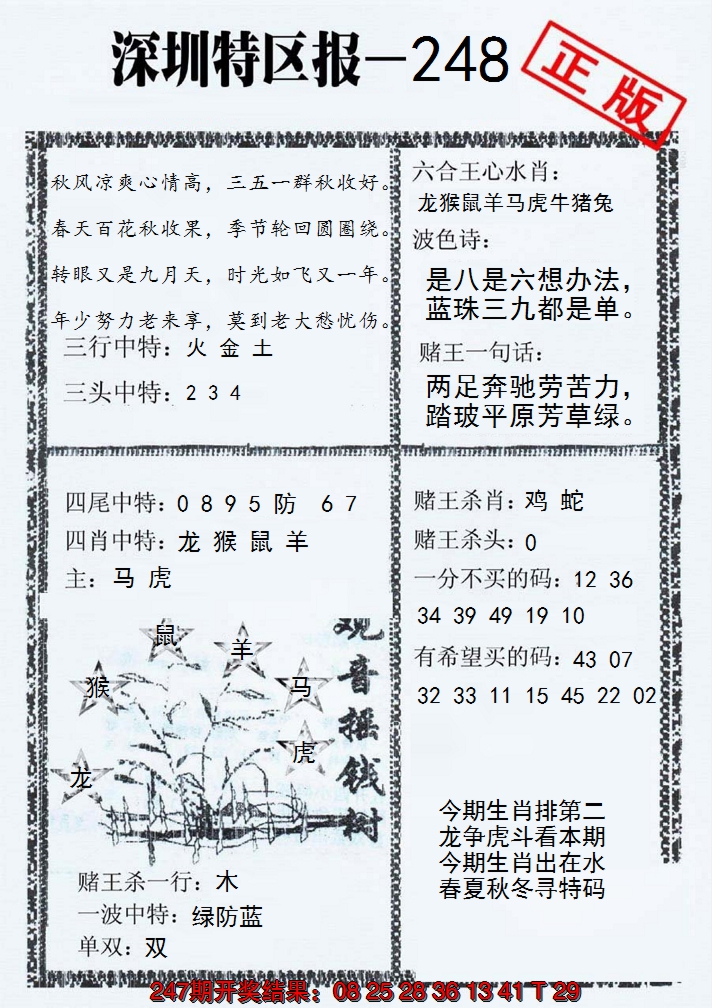 深圳特区报—248
正版
秋风凉爽心情高，三五一群秋收好。
春天百花秋收果，季节轮回圆圈绕。
转眼又是九月天，时光如飞又一年。
年少努力老来享，莫到老大愁忧伤。
三行中特：火 金 土
三头中特：2 3 4
六合王心水肖：
龙猴鼠羊马虎牛猪兔
波色诗：
是八是六想办法，
蓝珠三九都是单。
赌王一句话：
两足奔驰劳苦力，
踏玻平原芳草绿。
四尾中特：0 8 9 5 防 6 7
四肖中特：龙 猴 鼠 羊
主：马 虎
鼠
羊
猴
马
虎
龙
观音摇钱树
赌王杀一行：木
一波中特：绿防蓝
单双：双
赌王杀肖：鸡 蛇
赌王杀头：0
一分不买的码：12 36
34 39 49 19 10
有希望买的码：43 07
32 33 11 15 45 22 02
今期生肖排第二
龙争虎斗看本期
今期生肖出在水
春夏秋冬寻特码
247期开奖结果：08 25 28 36 13 41 T 29